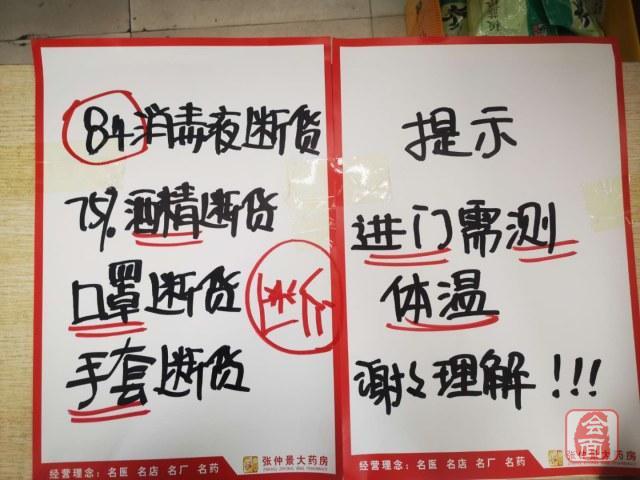 84消毒夜断货
75%酒精断货
口罩断货
手套断货
经营理念：名医 名店 名厂 名药
张仲景大药房
提示
进门需测
体温
谢谢理解!!!
经营理念：名医 名店 名厂 名药
张仲景大药房
会面